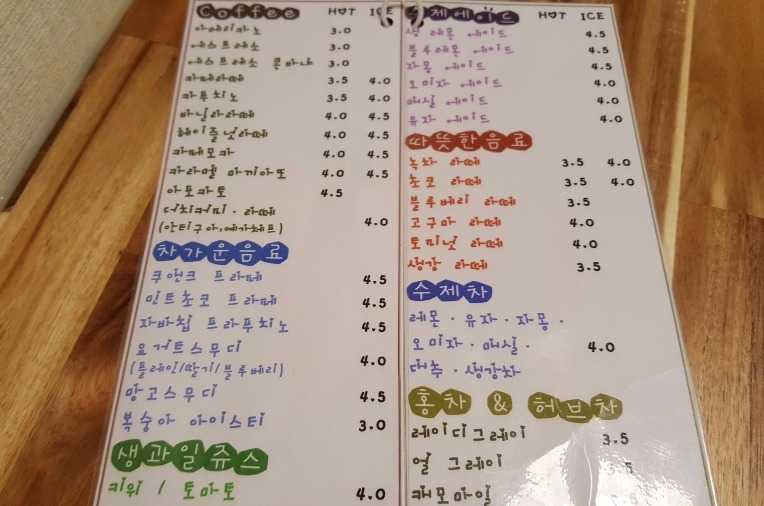 Coffee HOT ICE
아메리카노 3.0
에스프레소 3.0
에스프레소 콘파나 3.0
카페라떼 3.5 4.0
카푸치노 3.5 4.0
바닐라라떼 4.0 4.5
헤이즐넛라떼 4.0 4.5
카페모카 4.0 4.5
카라멜 마끼아또 4.0 4.5
아포카토 4.5
더치커피 · 라떼
(안티구아,예가체프) 4.0
차가운음료
쿠앤크 프라페 4.5
민트초코 프라페 4.5
자바칩 프라푸치노 4.5
요거트스무디
(플레인/딸기/블루베리) 4.0
망고스무디 4.5
복숭아 아이스티 3.0
생과일쥬스
키위 / 토마토 4.0
제에이드 HOT ICE
생 레몬 에이드 4.5
블루레몬 에이드 4.5
자몽 에이드 4.5
오미자 에이드 4.0
매실 에이드 4.0
유자 에이드 4.0
따뜻한음료
녹차 라떼 3.5 4.0
초코 라떼 3.5 4.0
블루베리 라떼 3.5
고구마 라떼 4.0
토피넛 라떼 4.0
생강 라떼 3.5
수제차
레몬 · 유자 · 자몽 ·
오미자 · 매실 · 4.0
대추 · 생강차
홍차 & 허브차
레이디그레이 3.5
얼 그레이
캐모마일